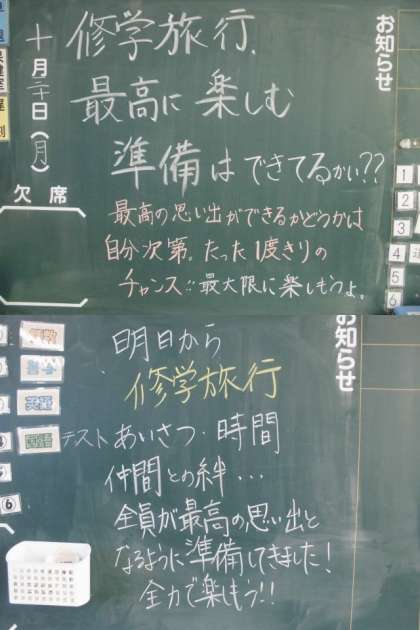 お知らせ
修学旅行、
最高に楽しむ
準備はできてるかい??
最高の思い出ができるかどうかは
自分次第。たった1度きりの
チャンス!!最大限に楽しもうよ。
十月二十日(月)
欠席
1
2
3
4
5
6
お知らせ
明日から
修学旅行
あいさつ・時間
仲間との絆・・・
全員が最高の思い出と
なるように準備してきました!
全力で楽しもう!!
算数
英語
国語
テスト
⑥